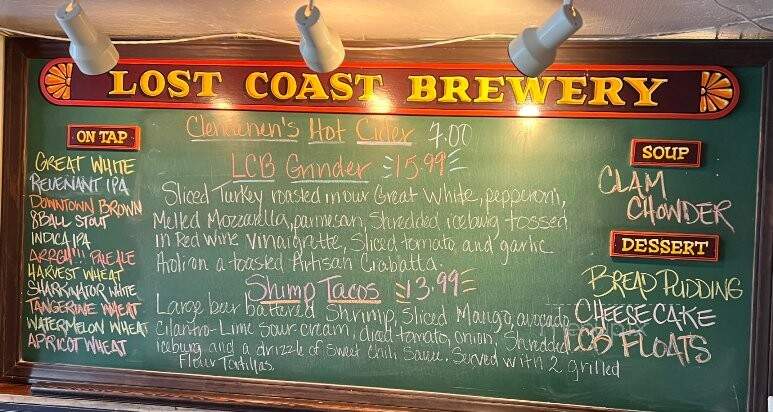 LOST COAST BREWERY
ON TAP
GREAT WHITE
REVENANT IPA
DOWNTOWN BROWN
8 BALL STOUT
INDICA IPA
ARRGH!!! PALE ALE
HARVEST WHEAT
SHARKINATOR WHITE
TANGERINE WHEAT
WATERMELON WHEAT
APRICOT WHEAT
Clendenen's Hot Cider 7.00
LCB Grinder 15.99
Sliced Turkey roasted in our Great White, pepperoni,
Melted Mozzarella, parmesan, Shredded iceburg tossed
in Red Wine Vinaigrette, Sliced tomato, and garlic
Aioli on a toasted Artisan Ciabatta.
Shrimp Tacos 13.99
Large beer battered Shrimp, Sliced Mango, avocado,
Cilantro-Lime Sour cream, diced tomato, onion, Shredded
iceburg and a drizzle of Sweet Chili Sauce. Served with 2 grilled
Flour Tortillas.
SOUP
CLAM
CHOWDER
DESSERT
BREAD PUDDING
CHEESECAKE
LCB FLOATS